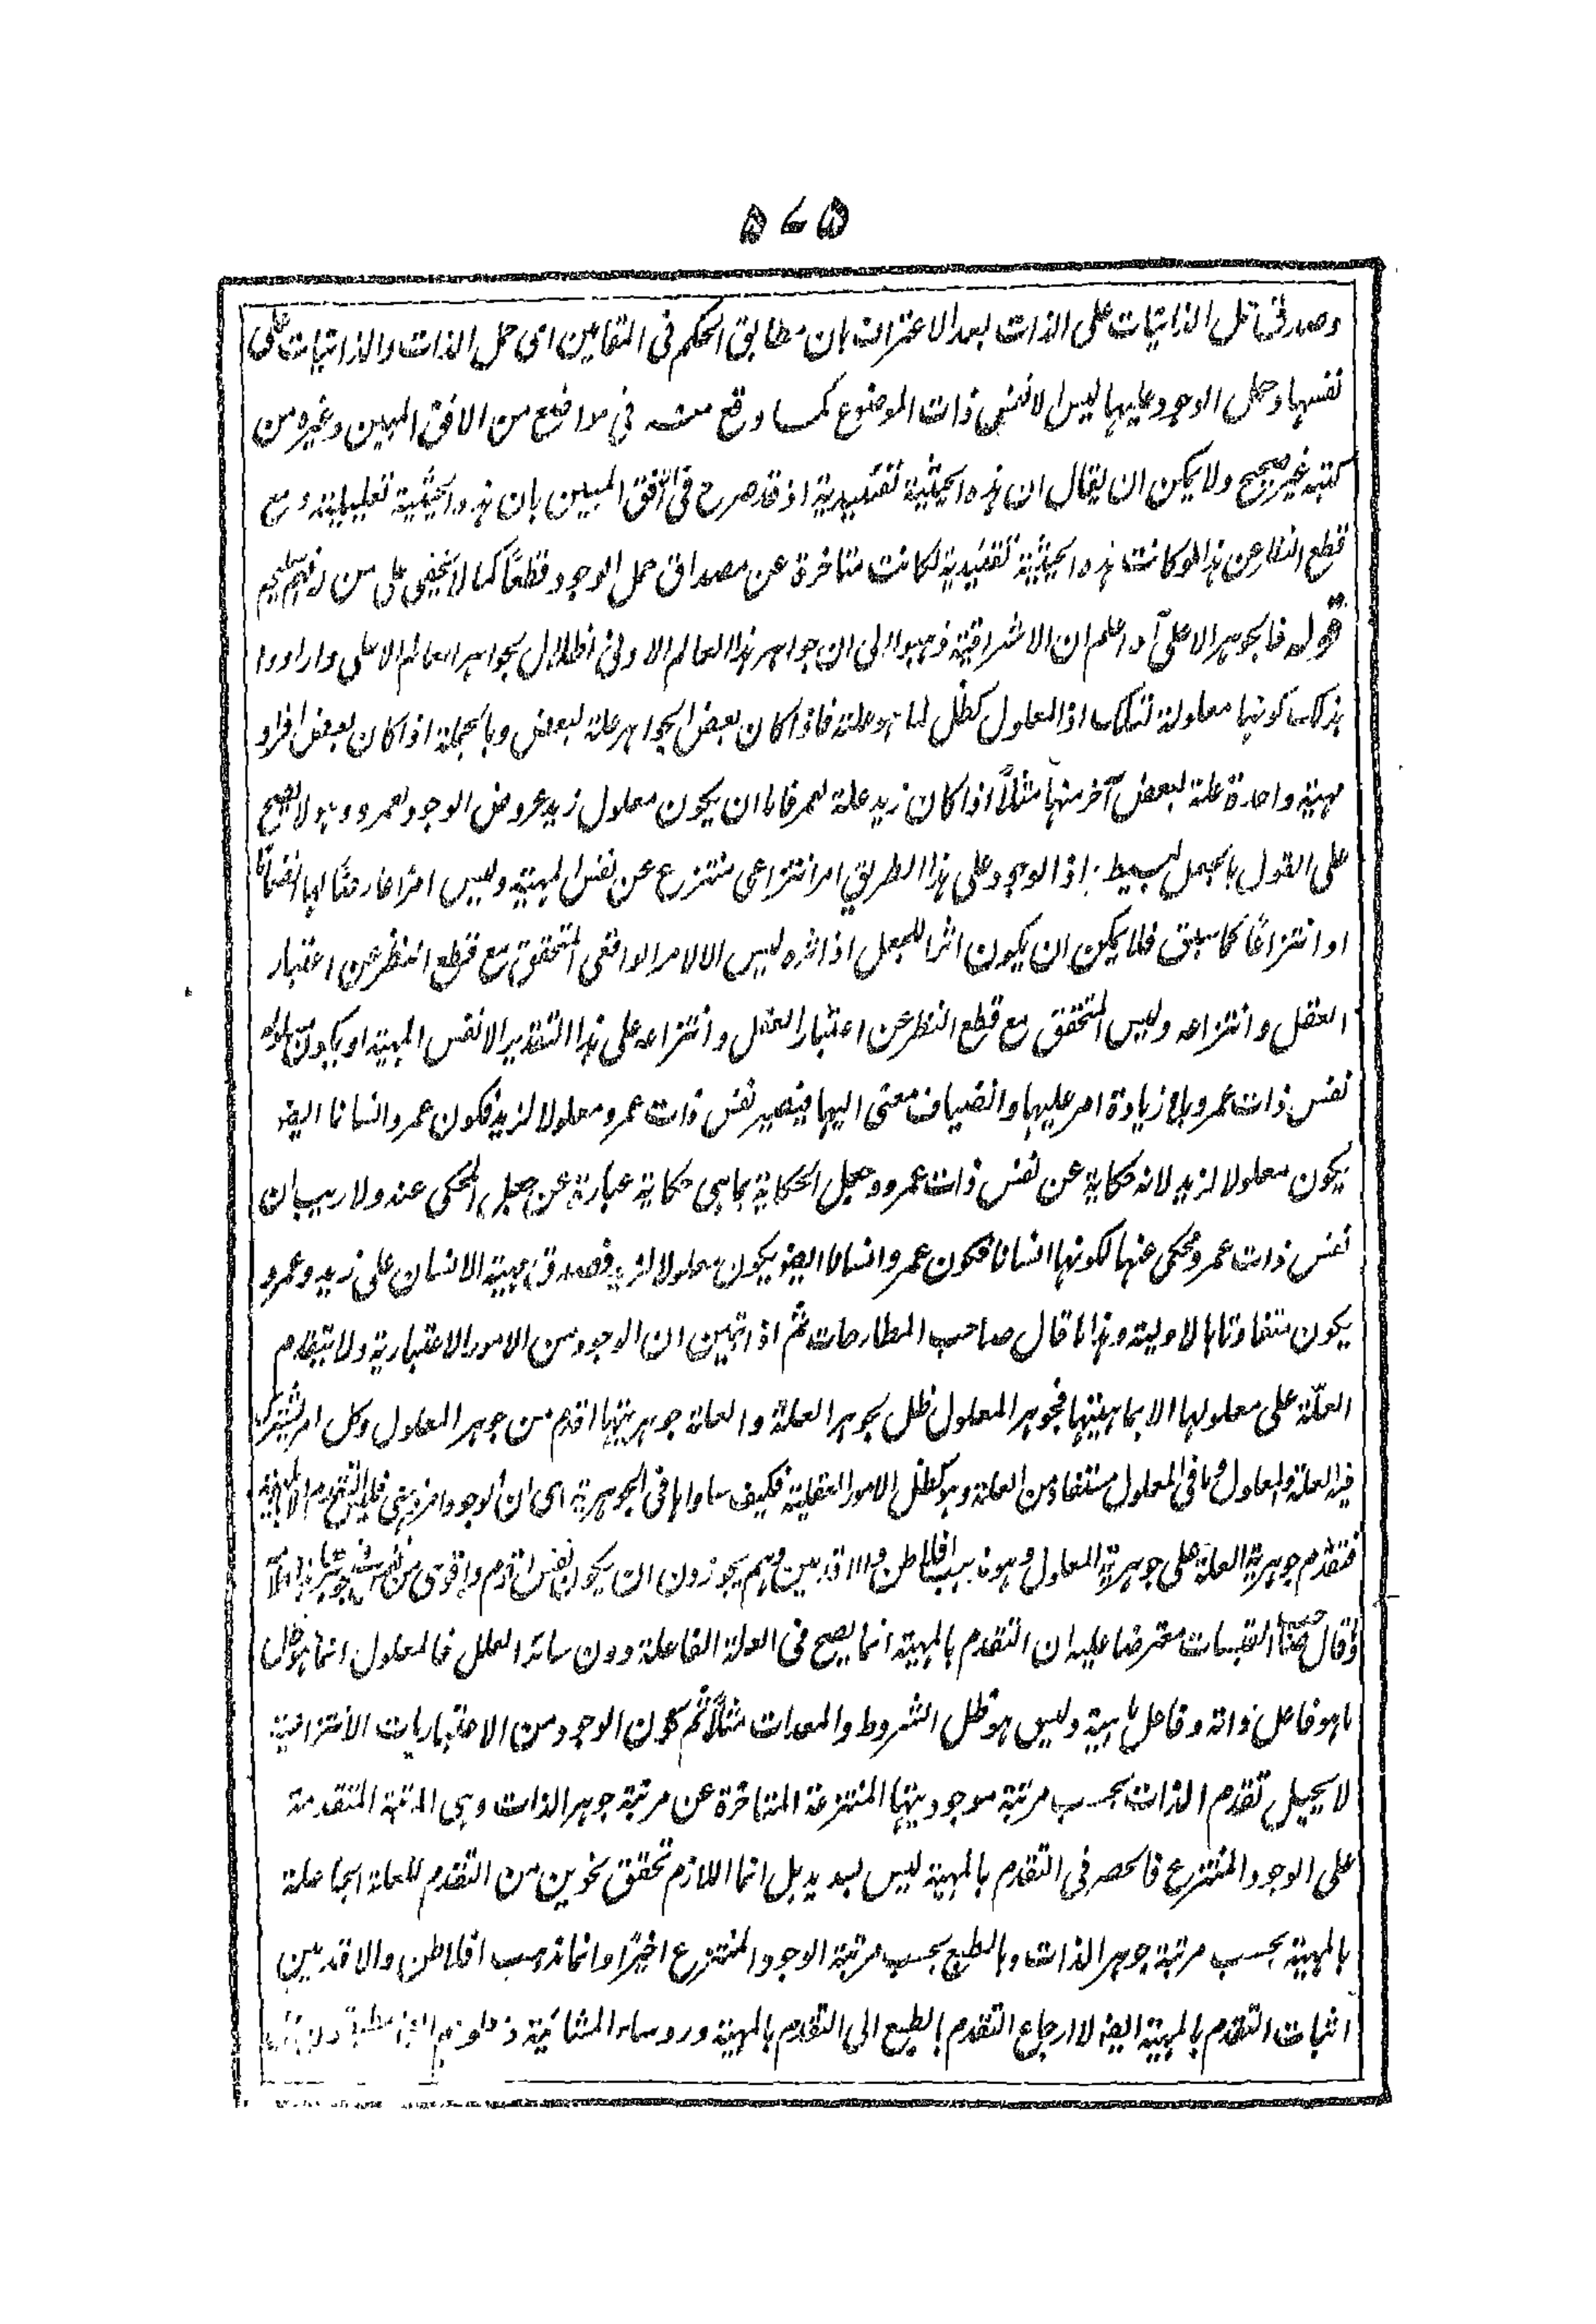 ۵۷۵
وصدق حمل الذاتيات على الذات بعد الاعتراف بان مطابق الحكم فى المقامين اى حمل الذات والذاتيات على
نفسها وحمل الوجود عليها ليس الا نفس ذات الموضوع كما وقع منه فى مواضع من الافق المبين وغيره من
كتبه غير صحيح ولا يمكن ان يقال ان هذه الحيثية تقييدية اذ قد صرح فى الافق المبين بان هذه الحيثية تعليلية ومع
قطع النظر عن هذا لو كانت هذه الحيثية تقييدية لكانت متاخرة عن مصداق حمل الوجود قطعًا كما لا يخفى على من له فهم سليم
قوله فالجوهر الاعلى آه اعلم ان الاشراقية ذهبوا الى ان جواهر هذا العالم الادنى اظلال لجواهر العالم الاعلى وارادوا
بذلك كونها معلولة لتلك اذ المعلول كظل لما هو علته فاذا كان بعض الجواهر علة لبعض وبالجملة اذا كان بعض افراد
مهية واحدة علة لبعض آخر منها مثلاً اذا كان زيد علة لعمر فاما ان يكون معلول زيد عروض الوجود لعمرو وهو لا يصح
على القول بالجعل البسيط اذ الوجود على هذا الطريق امر انتزاعى منتزع عن نفس المهية وليس امرًا عارضًا لها انضمامًا
او انتزاعًا كما سبق فلا يمكن ان يكون اثرا للجعل اذ اثره ليس الا الامر الواقعى المتحقق مع قطع النظر عن اعتبار
العقل وانتزاعه وليس المتحقق مع قطع النظر عن اعتبار العقل وانتزاعه على هذا التقدير الا نفس المهية او يكون معلوله
نفس ذات عمرو بلا زيادة امر عليها وانضياف معنى اليها فيصير نفس ذات عمرو معلولا لزيد فكون عمرو انسانا ايضا
يكون معلولا لزيد لانه حكاية عن نفس ذات عمرو وجعل الحكاية بما هى حكاية عبارة عن جعل المحكى عنه ولا ريب ان
نفس ذات عمرو محكى عنها لكونها انسانا فكون عمرو انسانا ايضا يكون معلولا لزيد فصدق مهية الانسان على زيد وعمرو
يكون متفاوتا بالاولية وهذا ما قال صاحب المطارحات ثم اذ اتبين ان الوجود من الامور الاعتبارية ولا يتقدم
العلّة على معلولها الا بماهيتها فجوهر المعلول ظل لجوهر العلة والعلة جوهريتها اقدم من جوهر المعلول وكل امر يشترك
فيه العلة والمعلول وما فى المعلول مستفاد من العلة وهو كظل الامور العقلية فكيف ساواها فى الجوهرية اى ان الوجود امر ذهنى فليس التقدم الا بالمهية
فتقدم جوهرية العلة على جوهرية المعلول وهو مذهب افلاطن والاقدمين وهم يجوزون ان يكون نفس اقدم واقوى من نفس فى جوهرها
وقال صاحب القبسات معترضا عليه ان التقدم بالمهية انما يصح فى العلة الفاعلة دون سائر العلل فالمعلول انما هو ظل
ما هو فاعل ذاته وفاعل مهية وليس هو ظل الشروط والمعدات مثلاً ثم كون الوجود من الاعتباريات الانتزاعية
لا يحيل تقدم الذات بحسب مرتبة موجوديتها المنتزعة المتاخرة عن مرتبة جوهر الذات وهى المرتبة المتقدمة
على الوجود المنتزع فالحصر فى التقدم بالمهية ليس بسديد بل انما اللازم تحقق نحوين من التقدم للعلة الجاعلة
بالمهية بحسب مرتبة جوهر الذات وبالطبع بحسب مرتبة الوجود المنتزع اخيرًا وانما مذهب افلاطن والاقدمين
اثبات التقدم بالمهية ايضا لا ارجاع التقدم بالطبع الى التقدم بالمهية وروساء المشائية